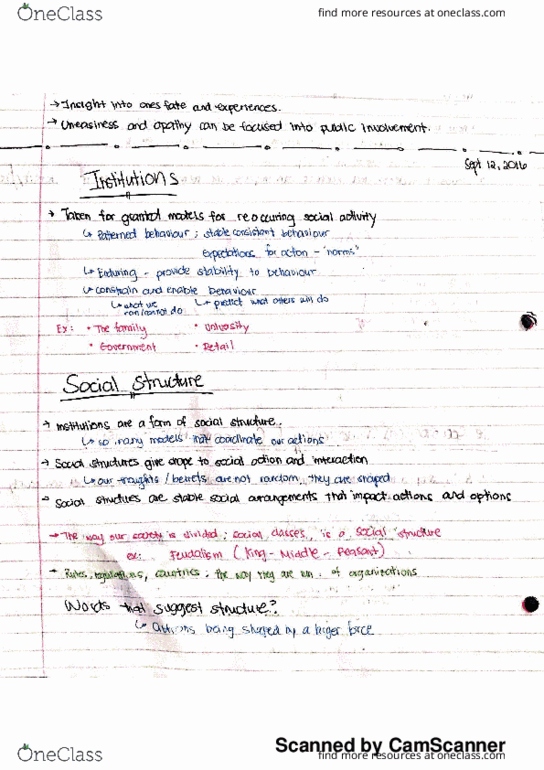 OneClass
find more resources at oneclass.com
→ Insight into ones fate and experiences.
→ Uneasiness and apathy can be focused into public involvement.
Sept 12, 2016
Institutions
→ Taken for granted models for reoccuring social activity
↳ Patterned behaviour ; stable consistent behaviour
expectations for action - "norms"
↳ Enduring - provide stability to behaviour
↳ constrain and enable behaviour
↳ what we can/cannot do ↳ predict what others will do
Ex: • The family • University
• Government • Retail
Social Structure
→ Institutions are a form of social structure.
↳ so many models that coordinate our actions
→ Social structures give shape to social action and interaction
↳ our thoughts / beliefs are not random, they are shaped
→ Social structures are stable social arrangements that impact actions and options
→ The way our society is divided ; social classes, is a social structure
ex: Feudalism (King - Middle - Peasant)
→ Rules, regulations, countries ; the way they are run of organizations
Words that suggest structure?
↳ actions being shaped by a larger force
Scanned by CamScanner
OneClass
find more resources at oneclass.com